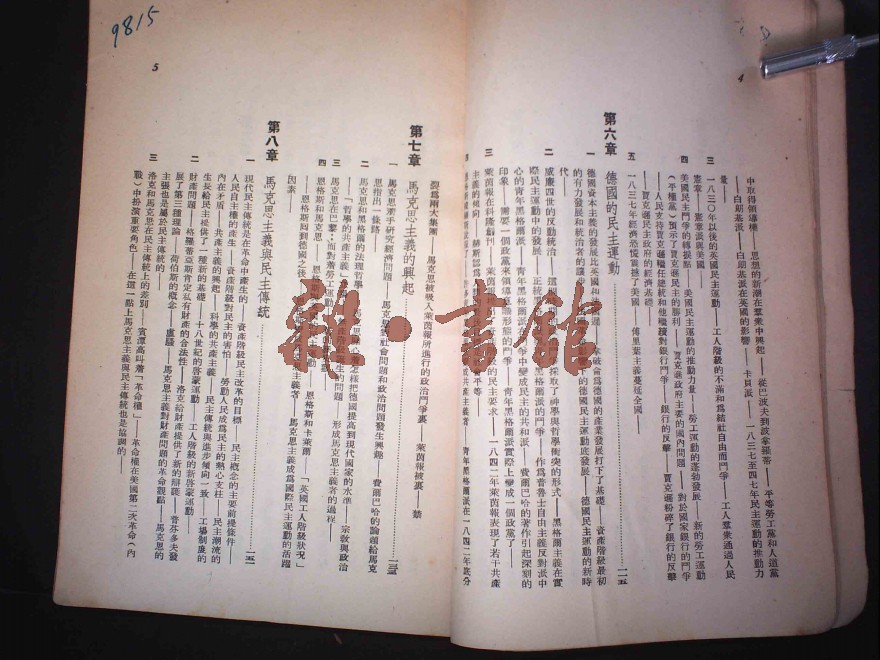 4
中取得領導權——思想的新潮在羣衆中興起——從巴波夫到波拿羅蒂——平等勞工黨和人道黨
——白朗基派——白朗基派在英國的影響——卡貝派——一八三七至四七年民主運動的推動力
量——
三 一八三〇年以後的英國民主運動——工人階級的不滿和爲結社自由而鬥爭——工人羣衆通過人民
憲章——憲章派與美國——
四 美國民主鬥爭的轉捩點——美國民主運動的推動力量——勞工運動的蓬勃發展——新的勞工運動
(平權黨)預示了賈克遜民主的勝利——賈克遜政府主要的國內問題——對於國家銀行的鬥爭
——人民支持賈克遜繼任總統和他繼續對銀行鬥爭——銀行的反擊——賈克遜粉碎了銀行的反擊
——賈克遜民主政府的經濟基礎——
五 一八三七年經濟恐慌震撼了美國——傅里葉主義蔓延全國——
第六章 德國的民主運動 一一五
一 德國資本主義的發展比英國和
會爲德國的產業發展打下了基礎——資產階級最初
的有力發展和統治者的讓步
的德國民主運動底發展——德國民主運動的新時
代——
二 威廉四世的反動統治——
採取了神學與哲學衝突的形式——黑格爾主義在實
際民主運動中的發展——正統
黑格爾派的鬥爭——作爲普魯士自由主義反對派中
心的青年黑格爾派——
爭中變成民主的共和派——費爾巴哈的著作引起深刻的
印象——需要一個政黨來領導
形態的鬥爭——青年黑格爾派實際上變成一個政黨了——
三 萊茵報在科隆創刊——萊茵報
的民主要求——一八四二年萊茵報表現了若干共產
主義的傾向——赫斯認爲
平等——
共產主義者——青年黑格爾派在一八四二年底分
9815
5
裂爲兩大集團——馬克思被吸入萊茵報所進行的政治鬥爭裏——萊茵報被禁——
第七章 馬克思主義的興起 一三三
一 馬克思著手研究經濟問題——馬克思對社會問題和政治問題發生興趣——費爾巴哈的論題給馬克
思指出一條路——
二 馬克思和黑格爾的法理哲學
怎樣把德國提高到現代國家的水準——宗教與政治
——「哲學的共產主義」
產階級產生的問題——
三 馬克思在巴黎:面對着勞工運動
形成馬克思主義者的過程——
四 恩格斯和馬克思——恩格斯
主運動——恩格斯和卡萊爾——「英國工人階級狀況」
——恩格斯回到德國之後
主義者——馬克思主義成爲國際民主運動的活躍
因素——
第八章 馬克思主義與民主傳統 一五一
一 現代民主傳統是在革命中產生的——資產階級民主改革的目標——民主概念的主要前提條件——
人民自主權的產生——資產階級對民主的害怕——勞動人民成爲民主的熱心支柱——民主潮流的
內在矛盾——科學的共產主義——民主傳統與進步傾向一致——工場制度的
生長給民主提供了一種新的基礎——十八世紀的啓蒙運動——工人階級的新啓蒙運動——
二 財產問題——格羅蒂亞斯肯定私有財產的合法性——洛克給財產提供了新的辯護——普芬多夫發
展了第三種理論——荷伯斯的概念——盧騷——馬克思主義對財產問題的革命觀點——馬克思的
主張也是屬於民主傳統的——
三 洛克和馬克思在民主傳統上的差別——賓漂高叫着「革命權」——革命權在美國第二次革命(內
戰)中扮演重要角色——在這一點上馬克思主義與民主傳統也是協調的——
雜·書館